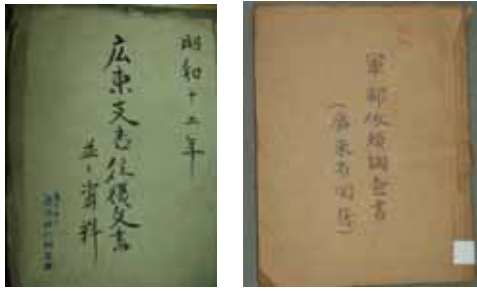 昭和十二年
広東支店往復文書
並ニ資料
軍部依頼調査書
(廣東省関係)